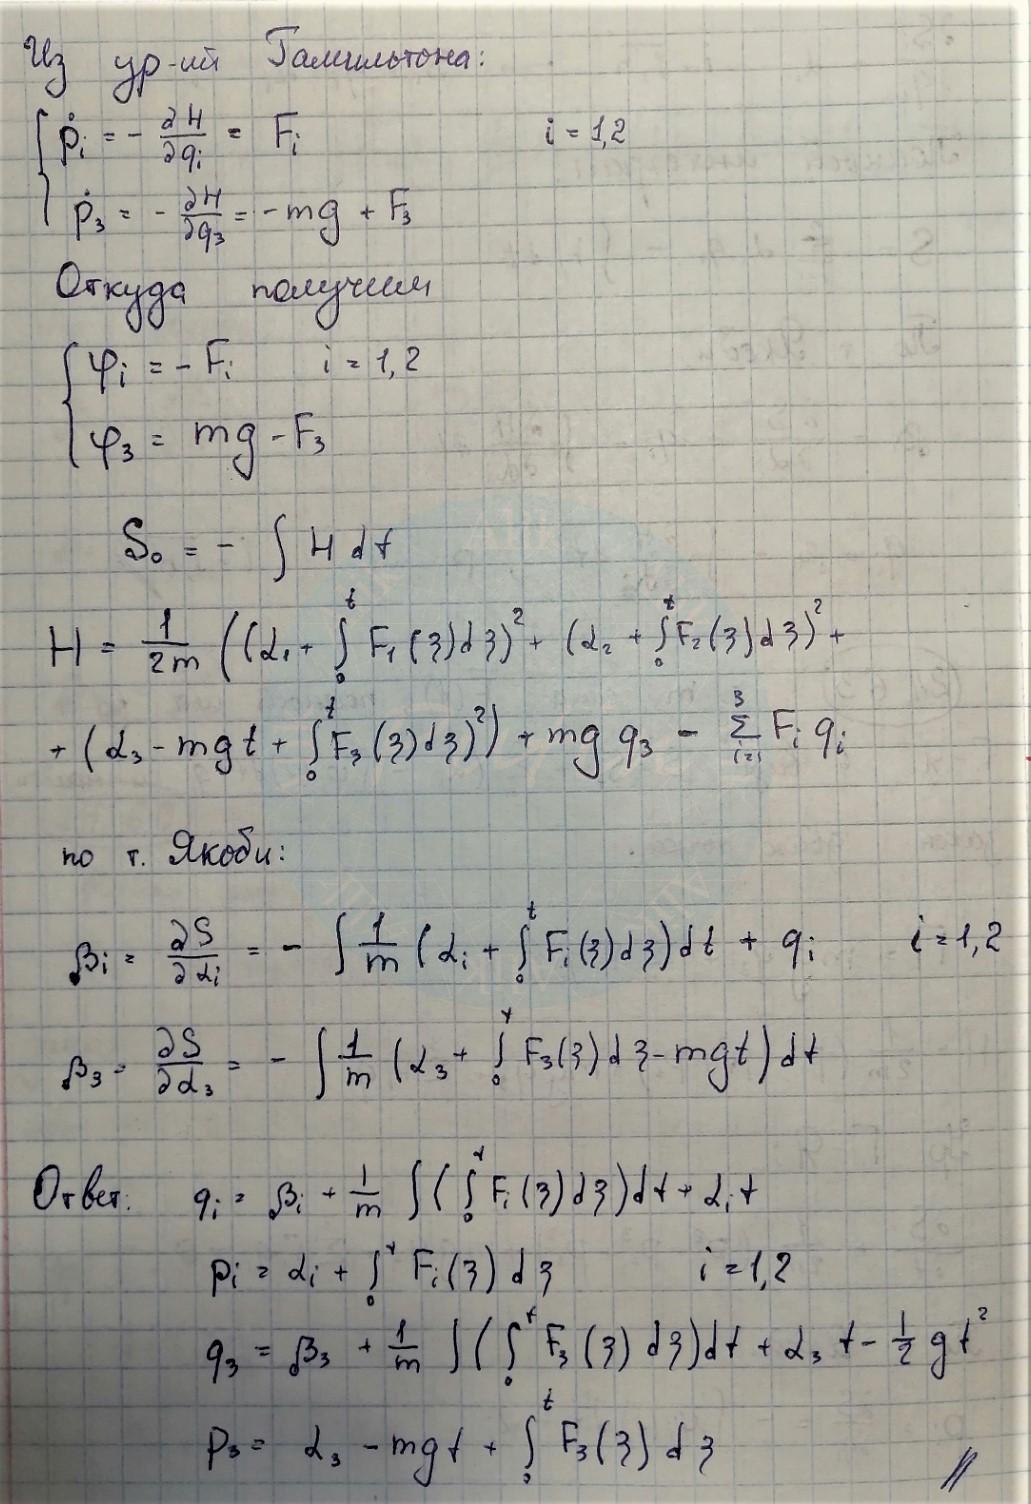 Из ур-ий Гамильтона:
ṗᵢ = - ∂H/∂qᵢ = Fᵢ i = 1,2
ṗ₃ = - ∂H/∂q₃ = -mg + F₃
Откуда получим
φᵢ = - Fᵢ i = 1,2
φ₃ = mg - F₃
S₀ = - ∫ H dt
H = 1/2m ((α₁ + ∫₀ᵗ F₁(ξ)dξ)² + (α₂ + ∫₀ᵗ F₂(ξ)dξ)² +
+ (α₃ - mgt + ∫₀ᵗ F₃(ξ)dξ)²) + mg q₃ - Σᵢ₌₁³ Fᵢ qᵢ
по т. Якоби:
βᵢ = ∂S/∂αᵢ = - ∫ 1/m (αᵢ + ∫₀ᵗ Fᵢ(ξ)dξ)dt + qᵢ i = 1,2
β₃ = ∂S/∂α₃ = - ∫ 1/m (α₃ + ∫₀ᵗ F₃(ξ)dξ - mgt)dt
Ответ: qᵢ = βᵢ + 1/m ∫(∫₀ᵗ Fᵢ(ξ)dξ)dt + αᵢt
pᵢ = αᵢ + ∫₀ᵗ Fᵢ(ξ)dξ i = 1,2
q₃ = β₃ + 1/m ∫(∫₀ᵗ F₃(ξ)dξ)dt + α₃t - 1/2 gt²
p₃ = α₃ - mgt + ∫₀ᵗ F₃(ξ)dξ